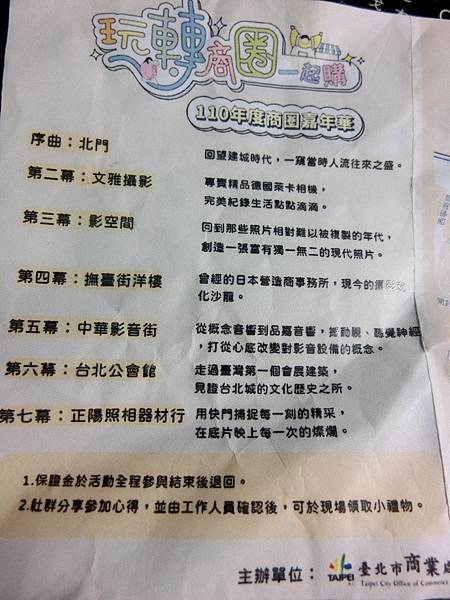 玩轉商圈一起購
110年度商圈嘉年華
序曲：北門
回望建城時代，一窺當時人流往來之盛。
第二幕：文雅攝影
專賣精品德國萊卡相機，
完美紀錄生活點點滴滴。
第三幕：影空間
回到那些照片相對難以被複製的年代，
創造一張富有獨一無二的現代照片。
第四幕：撫臺街洋樓
曾經的日本營造商事務所，現今的攝影文
化沙龍。
第五幕：中華影音街
從概念音響到品嘉音響，撼動視、聽覺神經
，打從心底改變對影音設備的概念。
第六幕：台北公會館
走過臺灣第一個會展建築，
見證台北城的文化歷史之所。
第七幕：正陽照相器材行
用快門捕捉每一刻的精采，
在底片映上每一次的燦爛。
1.保證金於活動全程參與結束後退回。
2.社群分享參加心得，並由工作人員確認後，可於現場領取小禮物。
主辦單位： TAIPEI 臺北市商業處
Taipei City Office of Commerce